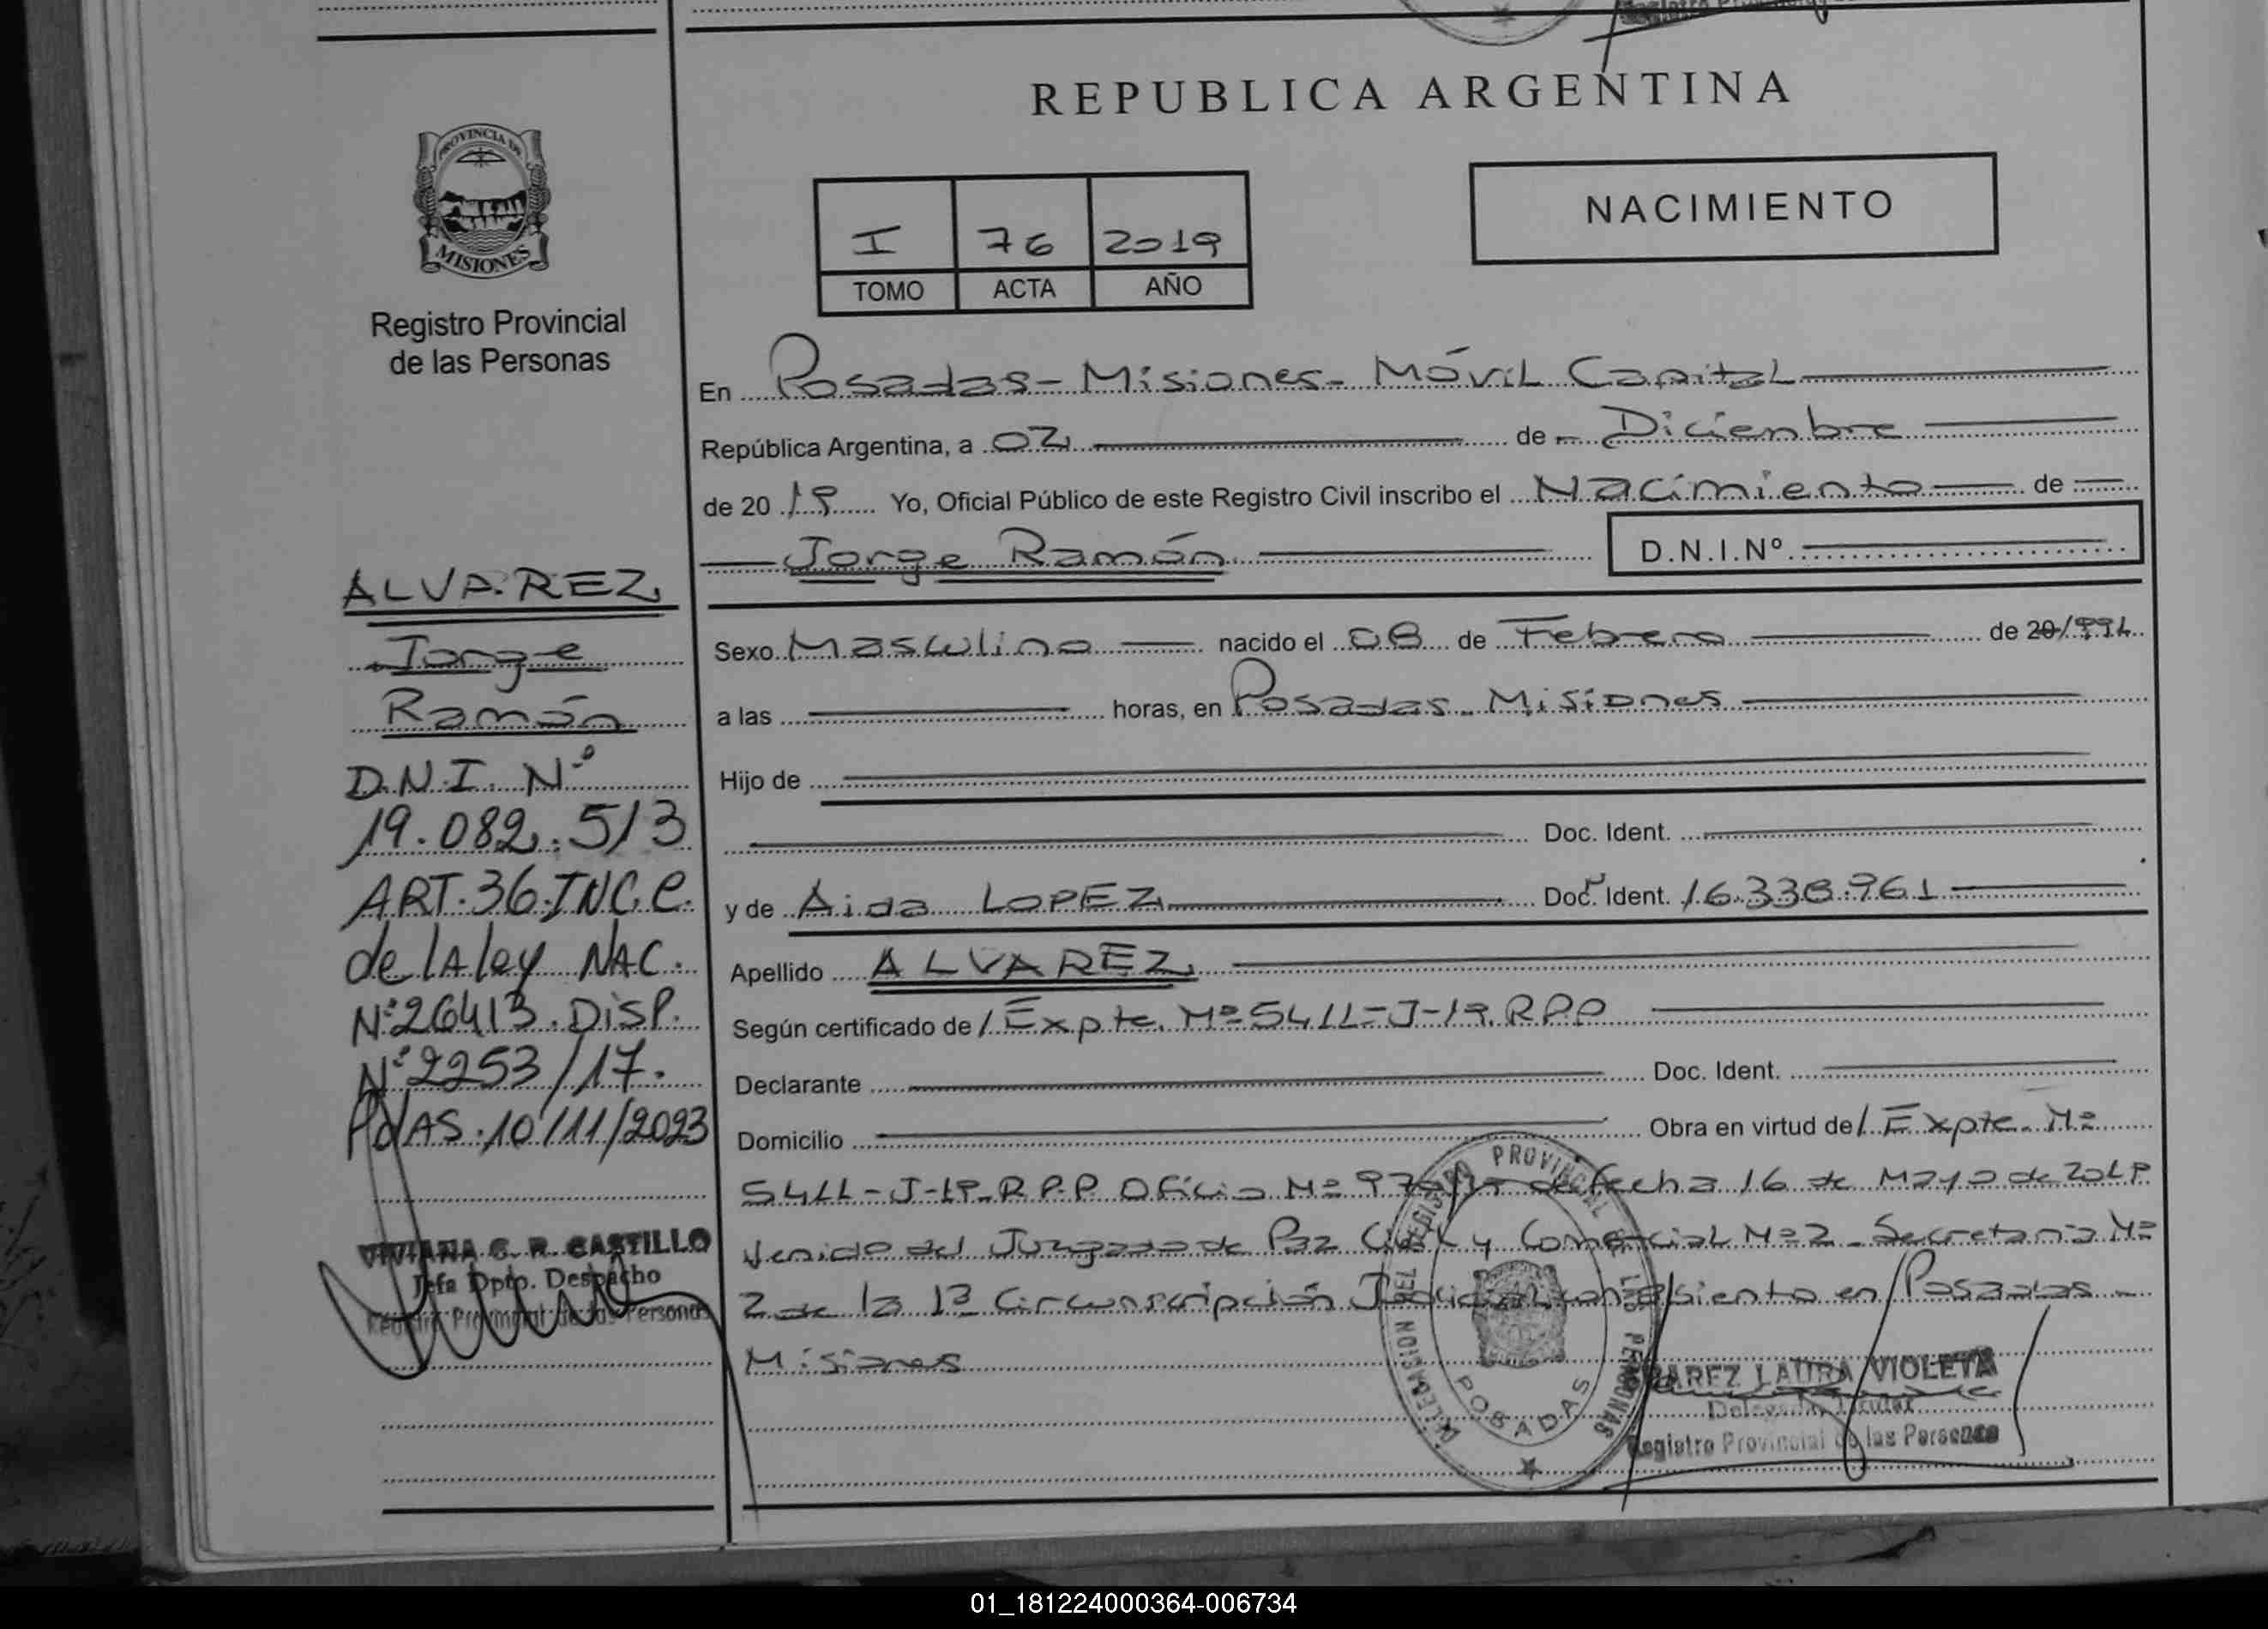 REPUBLICA ARGENTINA
PROVINCIA DE
MISIONES
Registro Provincial
de las Personas
NACIMIENTO
I 76 2019
TOMO ACTA AÑO
En Posadas - Misiones - Móvil Capital
República Argentina, a 02 de Diciembre
de 2019 Yo, Oficial Público de este Registro Civil inscribo el Nacimiento de
Jorge Ramón D.N.I.Nº
ALVAREZ
Jorge
Ramón
D.N.I. Nº
19.082.513
ART. 36 INC. C.
de lA ley NAC.
Nº 26413. DISP.
Nº 2253/17.
PdAS. 10/11/2023
VIVIANA C. R. CASTILLO
Jefa Dpto. Despacho
Registro Provincial de las Personas
Sexo Masculino nacido el 08 de Febrero de 20/
a las horas, en Posadas - Misiones
Hijo de
Doc. Ident.
y de Aida LOPEZ Doc. Ident. 16.338.961
Apellido ALVAREZ
Según certificado de / Expte. Nº 5411-J-19. RPP
Declarante Doc. Ident.
Domicilio Obra en virtud de / Expte. Nº
5411-J-19-R.P.P Oficio Nº de fecha 16 de Mayo de 2019
venido del Juzgado de Paz Civil y Comercial Nº 2 - Secretaria Nº
2 de la 1ª Circunscripción Judicial con asiento en Posadas -
Misiones
DELEGACION DEL REGISTRO PROVINCIAL DE LAS PERSONAS
POSADAS
AREZ LAURA VIOLETA
Delegada Titular
Registro Provincial de las Personas
01_181224000364-006734